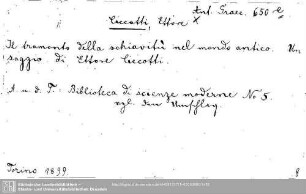 Ant. Graec. 650 e
Ciccotti, Ettore X
Il tramonto della schiavitù nel mondo antico. Un
saggio di Ettore Ciccotti.
A. u. d. T. Biblioteca di scienze moderne No 5.
vgl. den Umschlag.
Torino 1899.
8